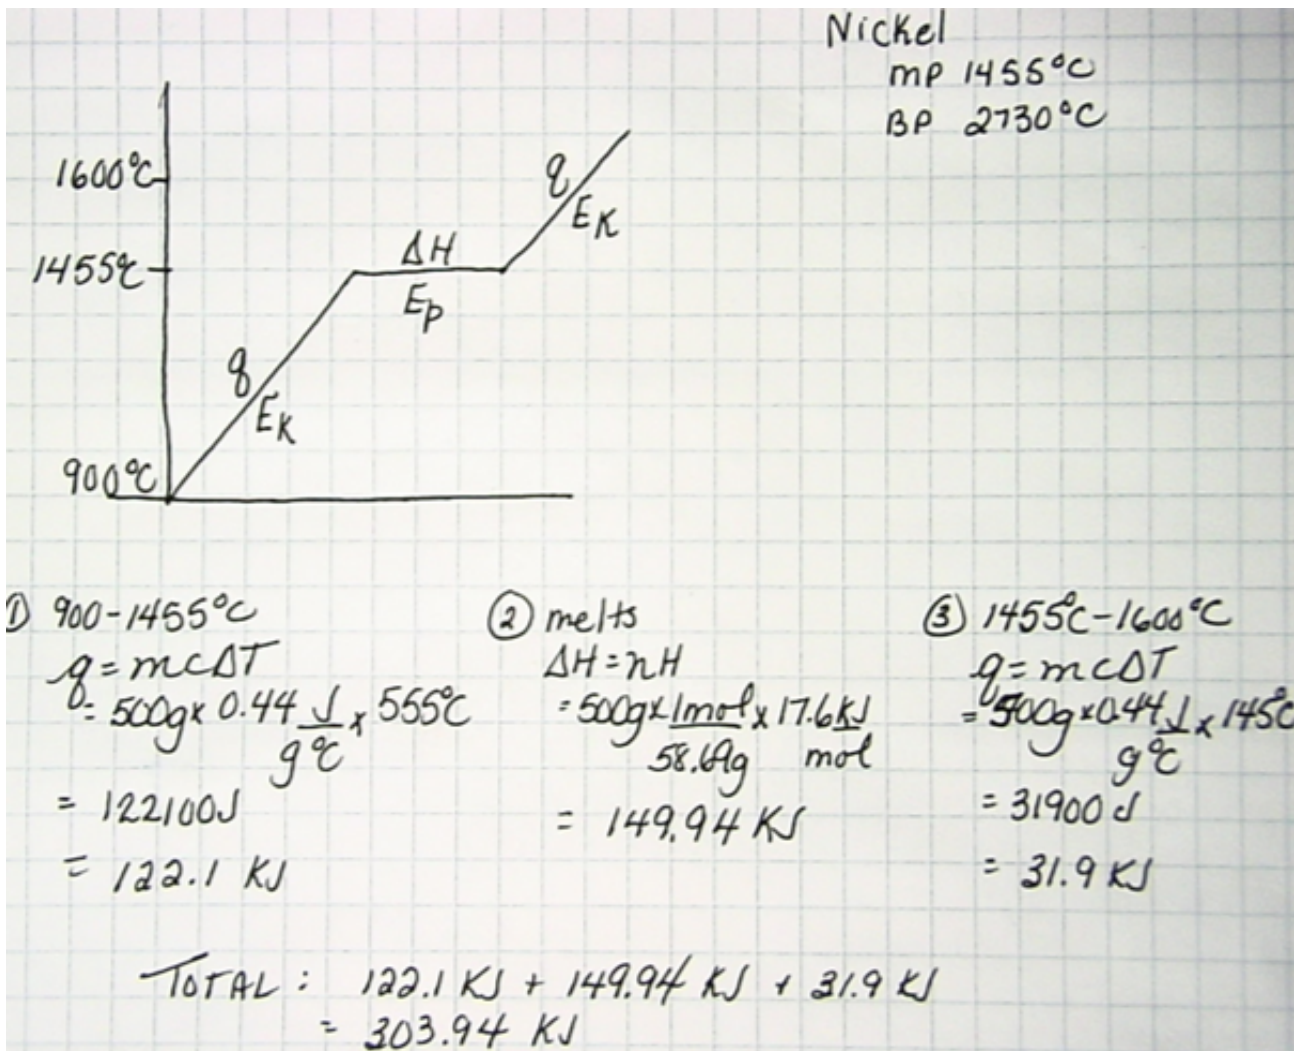 Nickel
mp 1455°C
BP 2730°C
1600°C
q
EK
ΔH
1455°C
Ep
q
EK
900°C
① 900-1455°C
q = mcΔT
= 500g x 0.44 J/g°C x 555°C
= 122100J
= 122.1 KJ
② melts
ΔH = nH
= 500g x 1mol/58.69g x 17.6 KJ/mol
= 149.94 KJ
③ 1455°C-1600°C
q = mcΔT
= 500g x 0.44 J/g°C x 145°C
= 31900 J
= 31.9 KJ
TOTAL : 122.1 KJ + 149.94 KJ + 31.9 KJ
= 303.94 KJ